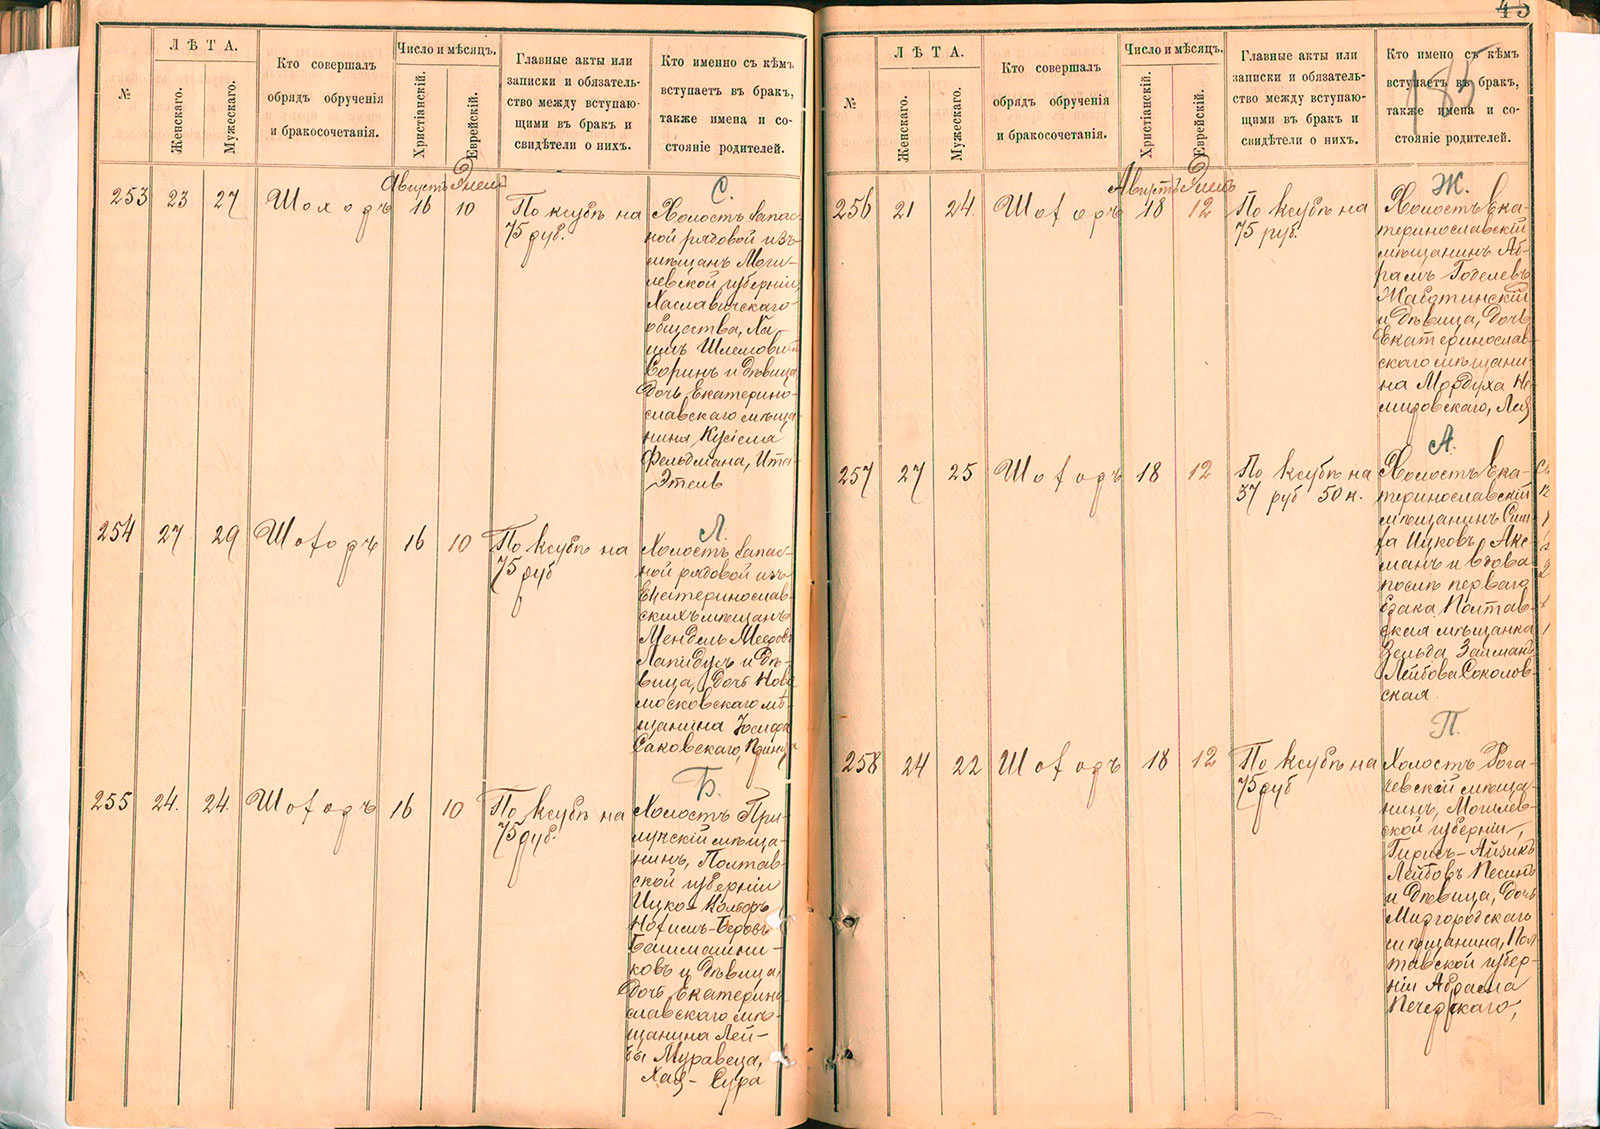 №
ЛѢТА.
Женскаго.
Мужескаго.
Кто совершалъ
обрядъ обрученія
и бракосочетанія.
Число и мѣсяцъ.
Христіанскій.
Еврейскій.
Главные акты или
записки и обязатель-
ство между вступаю-
щими въ бракъ и
свидѣтели о нихъ.
Кто именно съ кѣмъ
вступаетъ въ бракъ,
также имена и со-
стояніе родителей.
Августъ Элетъ
253 23 27 Шоходъ 16 10
По ксубѣ на
75 руб.
С.
Холостъ запас-
ной рядовой изъ
мѣщанъ Моги-
левской губерніи
Хаславичскаго
общества, Ха-
имъ Шлемовъ
Соринъ и дѣвица
дочь Екатерино-
славскаго мѣща-
нина Кусіела
Фельдмана, Ита-
Этель
254 27 29 Шоходъ 16 10
По ксубѣ на
75 руб
Л.
Холостъ запас-
ной рядовой изъ
Екатеринослав-
скихъ мѣщанъ
Мендель Мееровъ
Лапидусъ и дѣ-
вица, дочь Ново
московскаго мѣ-
щанина Іосифа
Саковскаго,
255 24. 24. Шоходъ 16 10
По ксубѣ на
75 руб.
Б.
Холостъ При-
лукскій мѣща-
нинъ, Полтав-
ской губерніи
Ицко-
Нохимъ-Беровъ
Башмашни-
ковъ и дѣвица,
дочь Екатерино
славскаго мѣ-
щанина Лей-
бы Муравеца,
Хая-Сура
45
185
№
ЛѢТА.
Женскаго.
Мужескаго.
Кто совершалъ
обрядъ обрученія
и бракосочетанія.
Число и мѣсяцъ.
Христіанскій.
Еврейскій.
Главные акты или
записки и обязатель-
ство между вступаю-
щими въ бракъ и
свидѣтели о нихъ.
Кто имено съ кѣмъ
вступаетъ въ бракъ,
также имена и со-
стояніе родителей.
Августъ Элетъ
256 21 24. Шоходъ 18 12
По ксубѣ на
75 руб.
Ж.
Холостъ Ека-
теринославскій
мѣщанинъ Аб-
рамъ Годелевъ
Жаботинскій
и дѣвица, дочь
Екатеринослав-
скаго мѣщани-
на Мордуха Не
мировскаго, Лея
257 27 25 Шоходъ 18 12
По ксубѣ на
37 руб 50 к.
А.
Холостъ Ека-
теринославскій
мѣщанинъ Сим-
ха Ицковъ Аке-
манъ и вдова
послѣ перваго
брака Полтав-
ская мѣщанка
Зельда Залманъ
Лейбова Соколов-
ская.
258 24 22 Шоходъ 18 12
По ксубѣ на
75 руб
П.
Холостъ Рога-
чевскій мѣща-
нинъ, Могилев-
ской губерніи,
Гиршъ-Айзикъ
Лейбовъ Песинъ
и дѣвица, дочь
Миргородскаго
мѣщанина, Пол-
тавской губер-
ніи Абрама
Печерскаго,